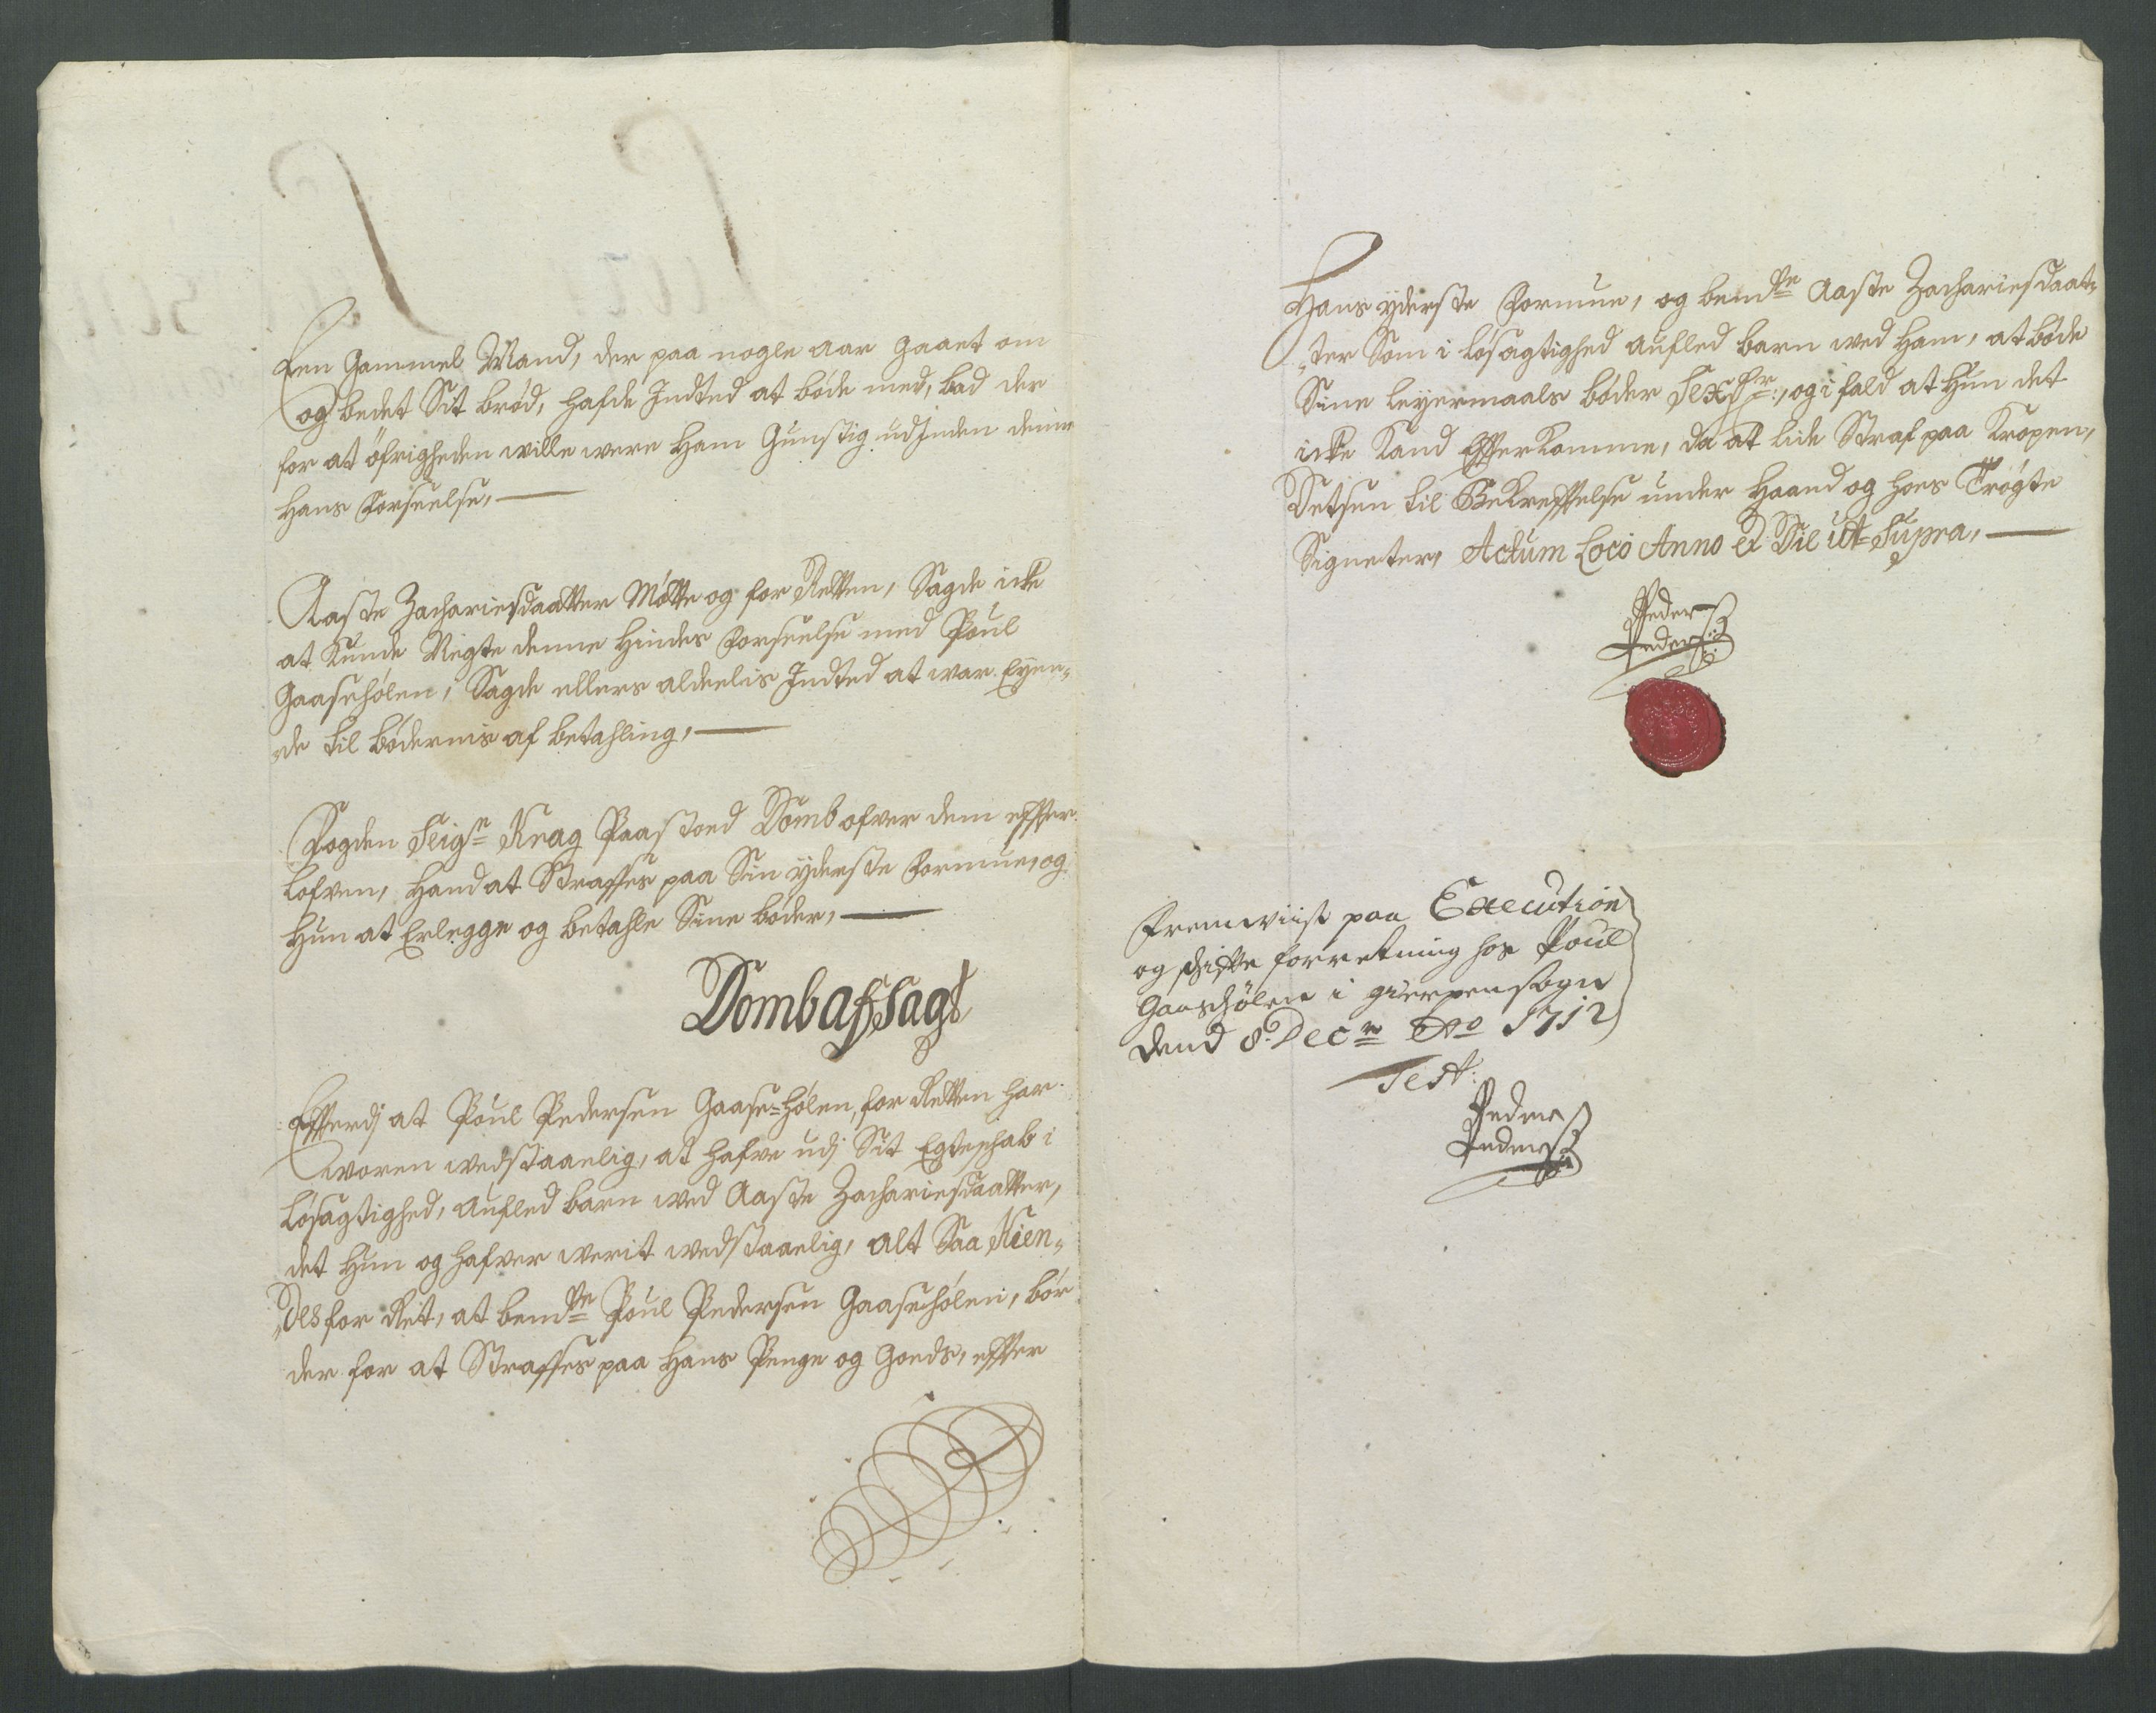 Een Gammel Mand, der paa nogle Aar gaaet om
og bedet Sit brød, hafde Indted at bøde med, bad der
for at øfrigheden wille were ham Gunstig udj inden denne
hans Forseelse,
Aaste Zachariesdaatter Møtte og for Retten, Sagde icke
at kunde Negte denne hindes Forseelse med Poul
Gaasehølen, Sagde ellers aldeelis Indted at war Eyen-
de til bødernis af betahling,
Fogden Seigr Knag Paastoed Domb ofver dem effter
Lofven, hand at Straffes paa Sin yderste Formue, og
hun at Erlegge og betahle Sine bøder,
Domb afsagt
Efterdj at Poul Pedersen Gaase-hølen, for Retten har
woren wedstaaelig, at hafve udj Sit Egteskab i
Løsagtighed, Aufled barn wed Aaste Zachariesdaatter,
det hun og hafver werit wedstaaelig, alt Saa Kien-
des for Ret, at bemte Poul Pedersen Gaasehølen, bør
der for at Straffes paa hans Penge og Goeds, effter
Hans yderste Formue, og bemte Aaste Zachariesdaat-
ter Som i Løsagtighed Aufled barn wed ham, at bøde
Sine Leyermaals bøder Sex , og i fald at hun det
icke Kand Efterkomme, da at lide Straf paa Kropen,
Detsen til Bekreftelse under Haand og hoes Trøgte
Signeter, Actum Loco Anno et Die ut Supra,
Peder
Peders:
Fremwiist paa Execution
og skifte forretning hos Poul
Gaasehølen i gierpen sogn
dend 8. Decr Ao 1712
Test:
Peder
Peders: